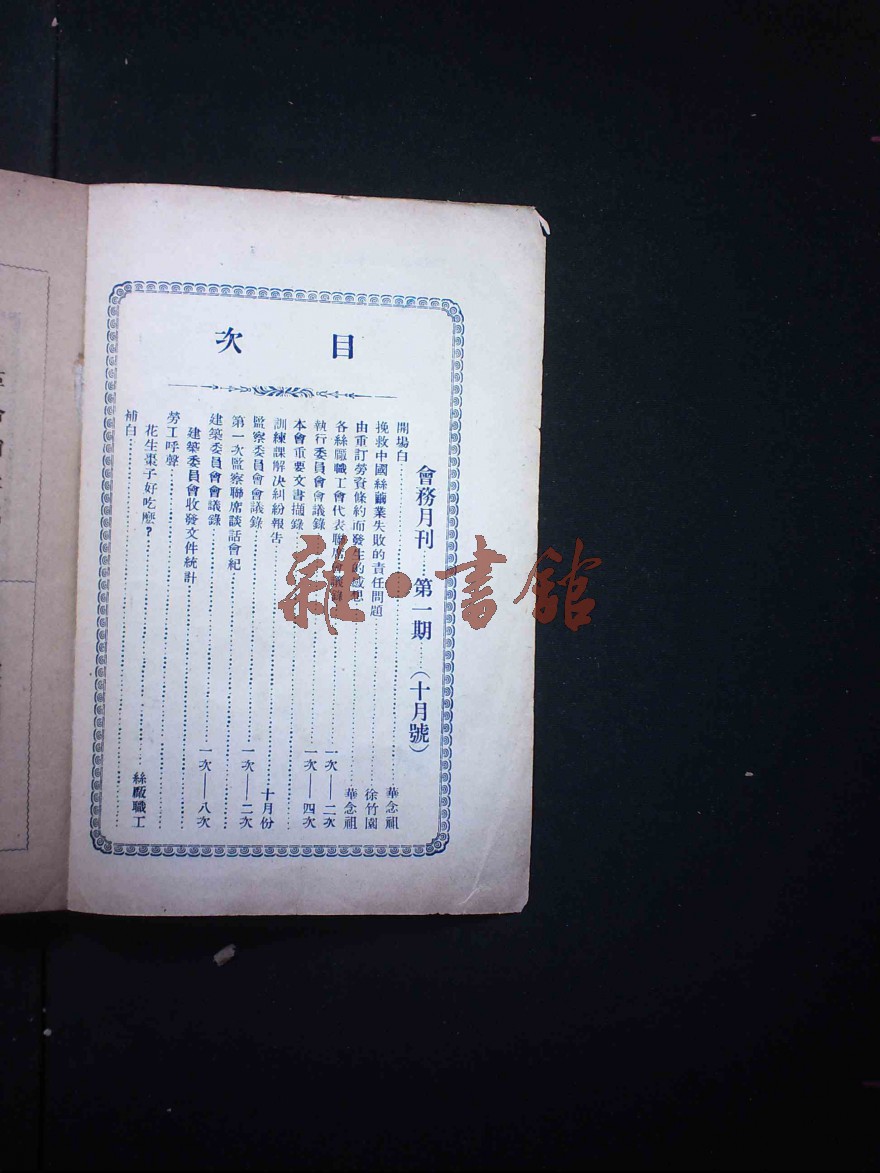 目次
會務月刊……第一期……(十月號)
開場白……華念祖
挽救中國絲繭業失敗的責任問題……徐竹園
由重訂勞資條約而發生的感想……華念祖
各絲廠職工會代表聯席會議錄……一次——二次
執行委員會會議錄……一次——四次
本會重要文書擷錄……
訓練課解決糾紛報告……十月份
監察委員會會議錄……一次——二次
第一次監察聯席談話會紀……
建築委員會會議錄……一次——八次
建築委員會收發文件統計……
勞工呼聲……
花生棗子好吃麽?……絲厰職工
補白……
雜·書館